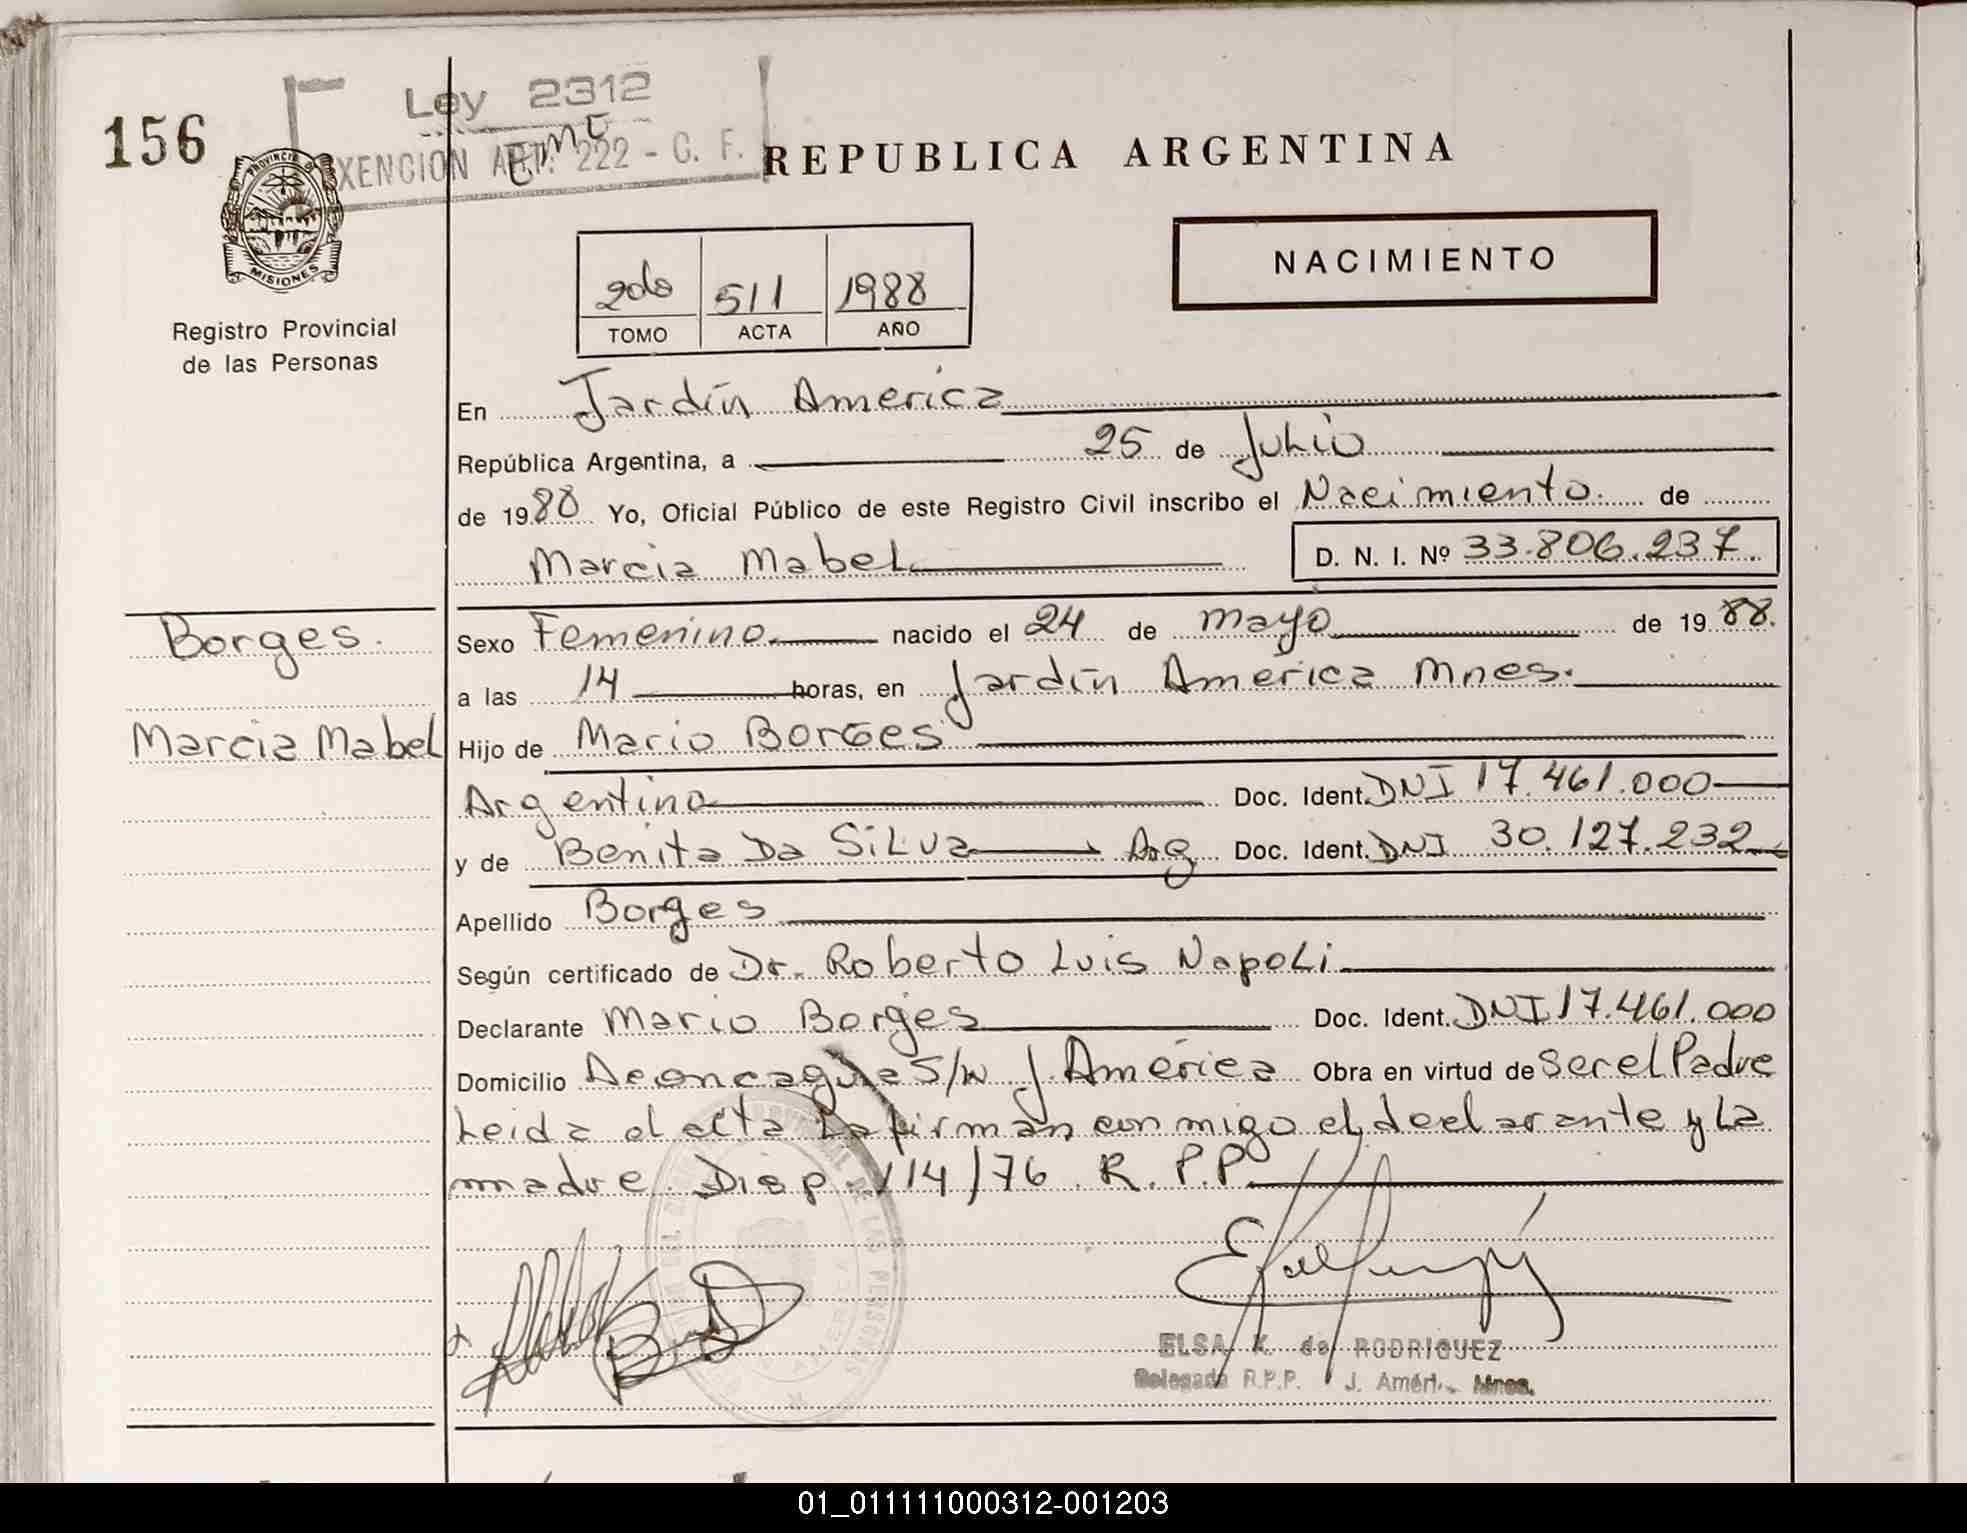 156
Ley 2312
XENCION ART. 222 - C. F.
REPUBLICA ARGENTINA
PROVINCIA DE
MISIONES
NACIMIENTO
2do 511 1988
TOMO ACTA AÑO
Registro Provincial
de las Personas
En Jardín America
República Argentina, a 25 de Julio
de 1988 Yo, Oficial Público de este Registro Civil inscribo el Nacimiento. de
Marcia Mabel D. N. I. Nº 33.806.237.
Borges.
Sexo Femenino nacido el 24 de mayo de 1988.
a las 14 horas, en Jardín America Mnes.
Marcia Mabel
Hijo de Mario Borges
Argentino Doc. Ident. DNI 17.461.000
y de Benita Da Silva Arg Doc. Ident. DNI 30.127.232
Apellido Borges
Según certificado de Dr. Roberto Luis Napoli
Declarante Mario Borges Doc. Ident. DNI 17.461.000
Domicilio Aconcagua S/N J. América Obra en virtud de Ser el Padre
Leida el acta La firman con migo el declarante y La
madre Disp. 114/76 R.P.P
ELSA K. de RODRIGUEZ
Delegada R.P.P. J. Améri. Mnes.
01_011111000312-001203